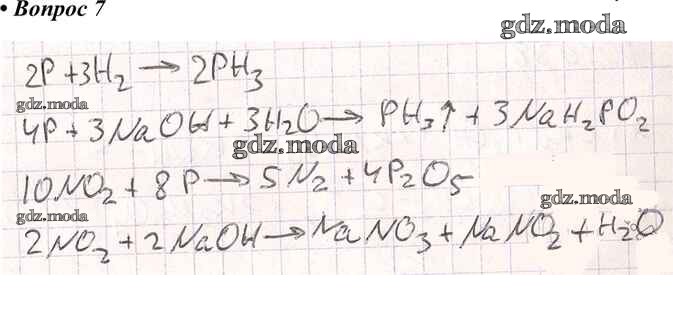 • Вопрос 7
gdz.moda
2P + 3H₂ → 2PH₃
gdz.moda
4P + 3NaOH + 3H₂O → PH₃↑ + 3NaH₂PO₂
gdz.moda
10NO₂ + 8P → 5N₂ + 4P₂O₅
gdz.moda
gdz.moda
2NO₂ + 2NaOH → NaNO₃ + NaNO₂ + H₂O